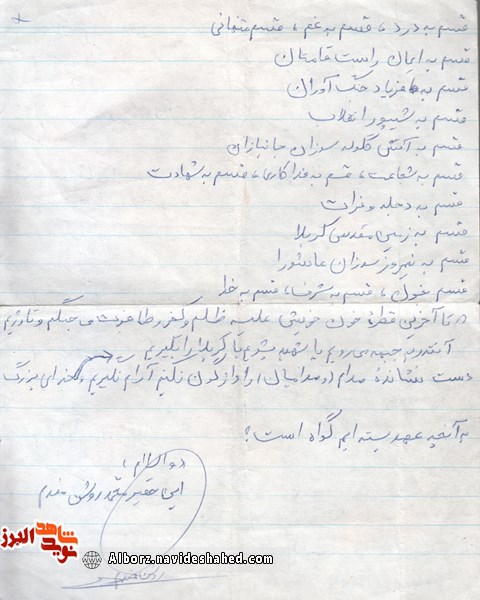 قسم به درد، قسم به غم، قسم
قسم به ایمان راست قامتان
قسم به فریاد جنگ آوران
قسم به شیپور انقلاب
قسم به آتش گلوله سوزان جانبازان
قسم به شجاعت، قسم به فداکاری، قسم به شهادت
قسم به دجله و فرات
قسم به زمین مقدس کربلا
قسم به نیمروز سوزان عاشورا
قسم بخون، قسم به شرف، قسم به خدا
تا آخرین قطره خون خویش علیه ظلم و کفر و طاغوت می جنگم و
آنقدر به جبهه می رویم یا شهید شویم یا کربلا را بگیریم
دست نشانده صدام (و صدامیان) را واژگون نکنیم آرام نگیریم و خدای بزرگ
به آنچه عهد بسته ایم گواه است
والسلام
این حقیر محمد روشن مقدم
شاهد
نوید
البرز
Alborz.navideshahed.com